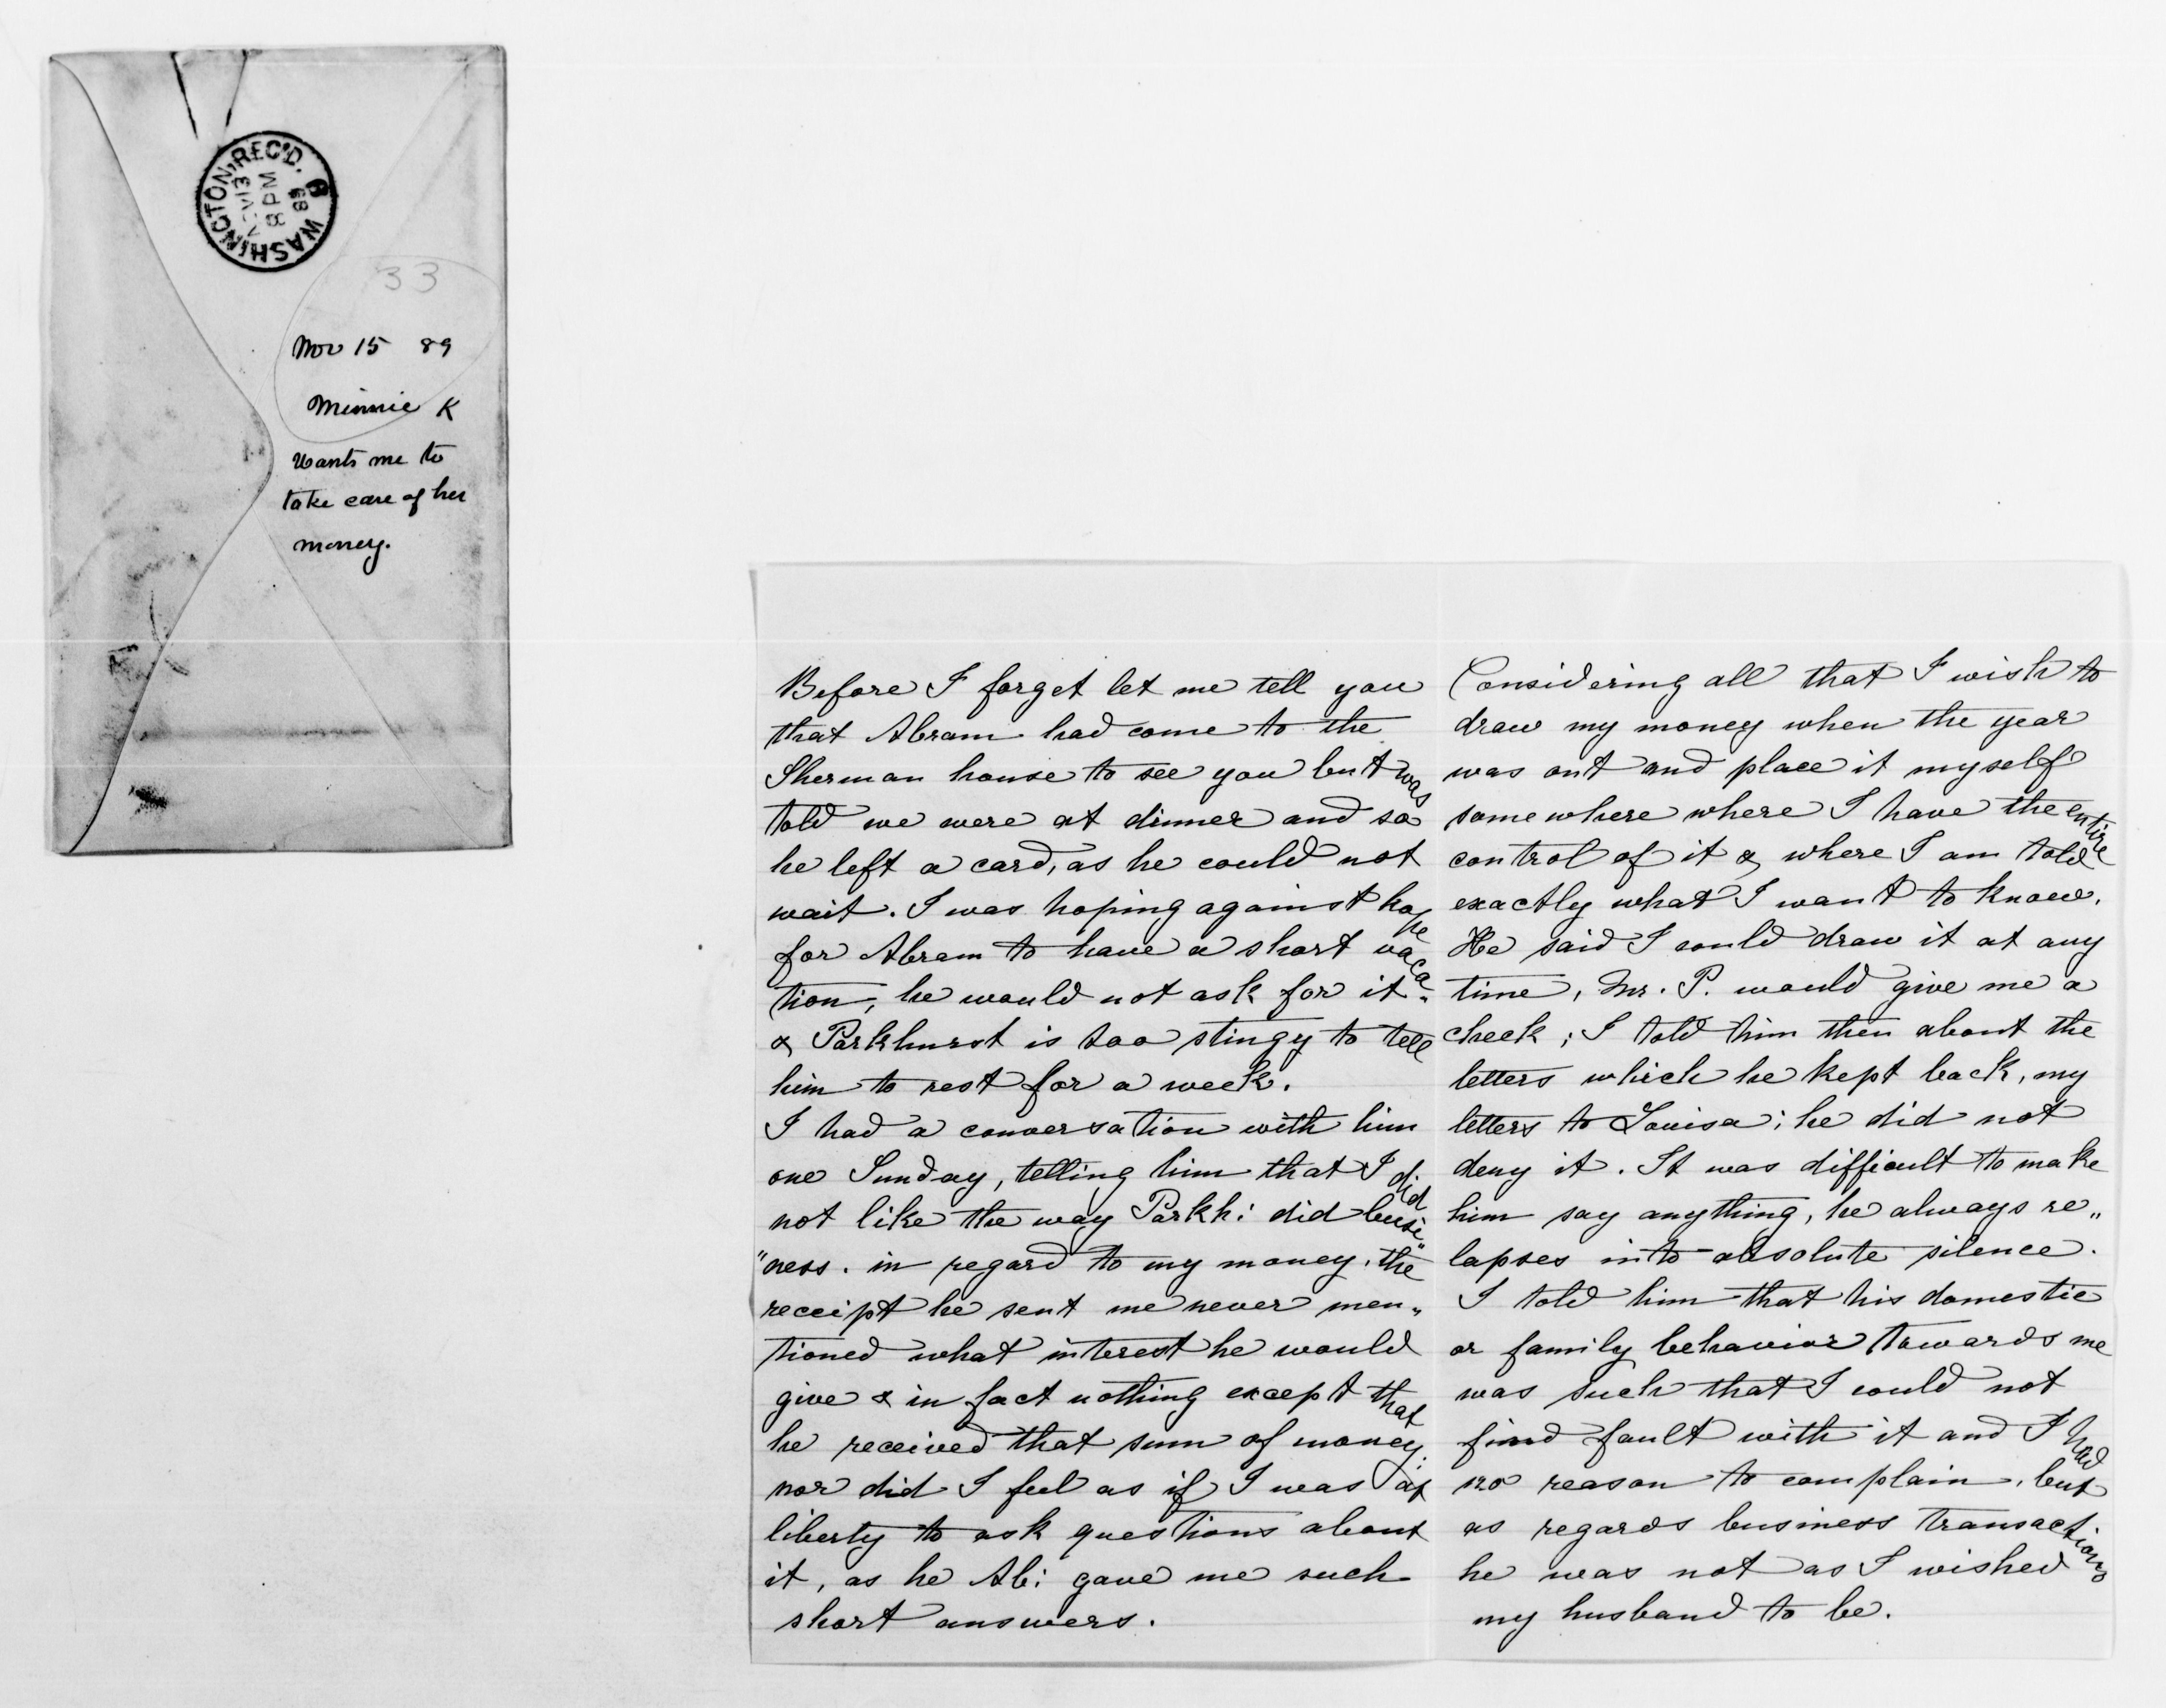 WASHINGTON, REC'D.
NOV 13
8 PM
89
6
33
Nov 15 89
Minnie K
Wants me to
take care of her
money.
Before I forget let me tell you
that Abram had come to the
Sherman house to see you but was
told we were at dinner and so
he left a card, as he could not
wait. I was hoping against hope
for Abram to have a short vaca„
tion, he would not ask for it
& Parkhurst is too stingy to tell
him to rest for a week.
I had a conversation with him
one Sunday, telling him that I did
not like the way Parkh: did busi„
"ness. in regard to my money, the
receipt he sent me never men„
tioned what interest he would
give & in fact nothing except that
he received that sum of money;
nor did I feel as if I was at
liberty to ask questions about
it, as he Ab: gave me such
short answers.
Considering all that I wish to
draw my money when the year
was out and place it myself
somewhere where I have the entire
control of it & where I am told
exactly what I want to know.
He said I could draw it at any
time, Mr. P. would give me a
check; I told him then about the
letters which he kept back, my
letters to Louisa; he did not
deny it. It was difficult to make
him say anything, he always re„
lapses into absolute silence.
I told him that his domestic
or family behavior towards me
was such that I could not
find fault with it and I had
no reason to complain, but
as regards business transactions
he was not as I wished
my husband to be.